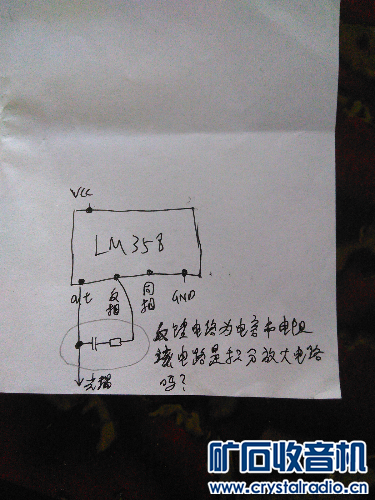 VCC
LM358
out
反相
同相
GND
反馈电络为电容和电阻
该电路是积分放大电路
吗?
矿石收音机
www.crystalradio.cn